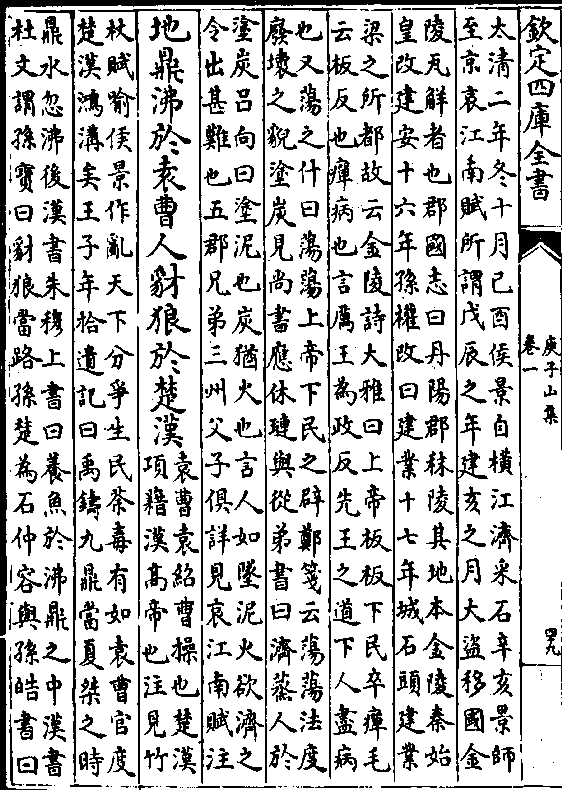 欽定四庫全書
庚子山集
卷一
四九
太清二年冬十月己酉侯景自橫江濟采石辛亥景師
至京哀江南賦所謂戊辰之年建亥之月大盜移國金
陵瓦解者也郡國志曰丹陽郡秣陵其地本金陵秦始
皇改建安十六年孫權改曰建業十七年城石頭建業
梁之所都故云金陵詩大雅曰上帝板板下民卒癉毛
云板反也癉病也言厲王為政反先王之道下人盡病
也又蕩之什曰蕩蕩上帝下民之辟鄭箋云蕩蕩法度
廢壞之貌塗炭見尚書應休璉與從弟書曰濟蒸人於
塗炭呂向曰塗泥也炭猶火也言人如墜泥火欲濟之
令出甚難也五郡兄弟三州父子俱詳見哀江南賦注
地鼎沸於袁曹人豺狼於楚漢
袁曹袁紹曹操也楚漢
項籍漢高帝也注見竹
杖賦喻侯景作亂天下分爭生民荼毒有如袁曹官度
楚漢鴻溝矣王子年拾遺記曰禹鑄九鼎當夏桀之時
鼎水忽沸後漢書朱穆上書曰養魚於沸鼎之中漢書
杜文謂孫寶曰豺狼當路孫楚為石仲容與孫皓書曰